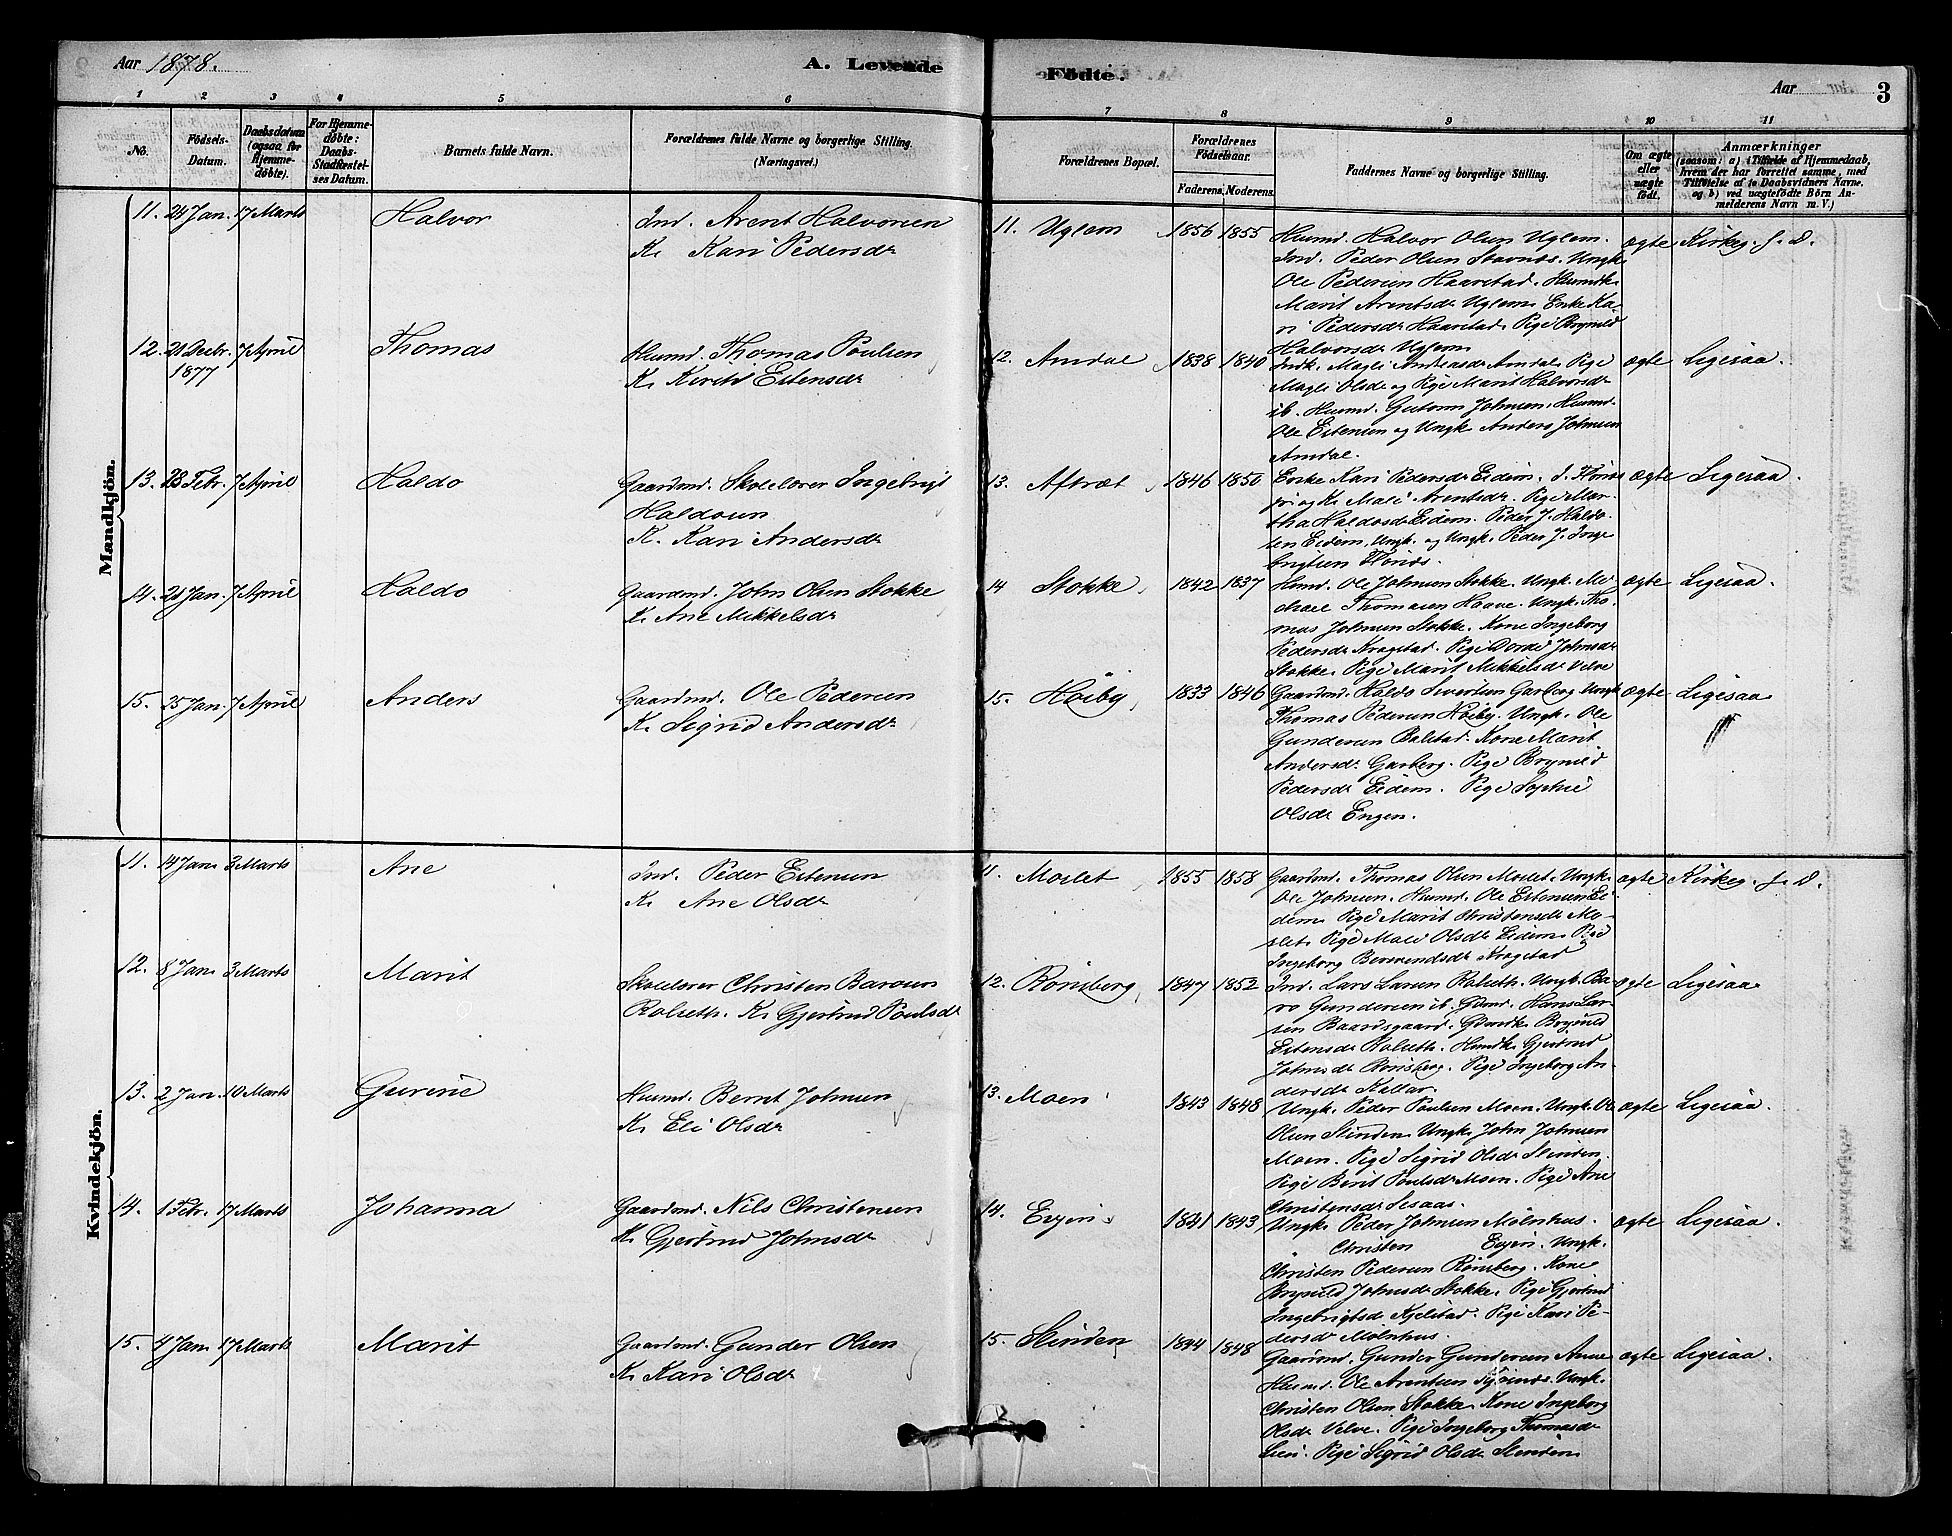 Aar 1878.
A. Levende Fødte.
Aar
3
1 2 3 4 5 6 7 8 9 10 11
No.
Fødsels-Datum.
Daabsdatum (ogsaa for Hjemme-døbte).
For Hjemme-døbte: Daabs-Stadfæstel-ses Datum.
Barnets fulde Navn.
Forældrenes fulde Navne og borgerlige Stilling. (Næringsvei.)
Forældrenes Bopæl.
Forældrenes Fødselsaar.
Faderens. Moderens.
Faddernes Navne og borgerlige Stilling.
Om ægte eller uægte født.
Anmærkninger (saasom: a) i Tilfælde af Hjemmedaab, hvem der har forrettet samme, med Tilføielse af to Daabsvidners Navne, og b) ved uægtefødte Børn An-melderens Navn m. V.)
Mandkjön.
11. Jan. 17 Marts Halvor
Ind. Arent Halvorsen
K. Kari Pedersdr
11. Uglem 1856 1855
Husmd. Halvor Olsen Uglem.
Ind. Peder Olsen Stavnes. Ungk
Ole Pedersen Haarstad. Husmdk.
Marit Arentsdr Uglem. Enke Ka-
ri Pedersdr Haarstad. Pige Brynild
Halvorsdr Uglem
ægte Kirkeg. f. D.
12. 21 Decbr. 1877 7 April Thomas
Husmd. Thomas Poulsen
K. Kirsti Estensdr
12. Amdal 1838 1840
Indk. Magli Andreasdr Amdal. Pige
Magli Olsdr og Pige Marit Halvorsdr
ib. Husmd. Gutorm Johnsen. Husmd.
Ole Estensen og Ungk Anders Johnsen
Amdal.
ægte Ligesaa.
13. 28 Febr. 7 April Haldo
Gaardmd. Skolelærer Ingebrigt
Haldosen
K. Kari Andersdr
13. Aftræt 1846 1850
Enke Kari Pedersdr Eidem.
K. Mali Arentsdr. Pige Mar-
tha Haldosdr Eidem. Peder J. Haldo-
sen Eidem, Ungk. og Ungk. Peder J. Inge
brigtsen
ægte Ligesaa.
14. 21 Jan. 7 April Haldo
Gaardmd. John Olsen Stokke
K. Ane Mikkelsdr
14 Stokke 1842 1837
Husmd. Ole Johnsen Stokke. Ungk. Mi-
chael Thomasen Haave. Ungk. Tho-
mas Johnsen Stokke. Kone Ingeborg
Pedersdr Kragstad. Pige Dordi Johnsdr
Stokke. Pige Marit Mikkelsdr Velve
ægte Ligesaa.
15. 25 Jan. 7 April Anders
Gaardmd. Ole Pedersen
K. Sigrid Andersdr
15. Høiby 1833 1846
Gaardmd. Haldo Sivertsen Garberg. Ungk
Thomas Pedersen Høiby. Ungk. Ole
Gundersen Balstad. Kone Marit
Andersdr Garberg. Pige Brynild
Pedersdr Eidem. Pige Sophie
Olsdr Engen.
ægte Ligesaa
Kvindekjön.
11. 14 Jan 3 Marts Ane
Ind. Peder Estensen
K. Ane Olsdr
11. Moslet 1855 1858
Gaardmd. Thomas Olsen Moslet. Ungk.
Ole Johnsen. Husmd. Ole Estensen Ei
dem. Pige Marit Christensdr Mo-
slet. Pige Mali Olsdr Eidem. Pige
Ingeborg Kragstad
ægte Kirkeg. f. D.
12. 8 Jan 3 Marts Marit
Skolelærer Christen Larsen
Rolseth. K. Gjertrud Poulsdr
12. Rønsberg 1847 1852
Ind. Lars Larsen Rolseth. Ungk. Ba-
ro Gundersen ib. Gdmd. Hans Lar-
sen Baardsgaard. Gdmdk. Brynild
Estensdr Rolseth. Husmdk Gjertrud
Johnsdr Rønsberg. Pige Ingeborg An-
dersdr Kallar.
ægte Ligesaa
13. 2 Jan. 10 Marts Gurine
Husmd. Bernt Johnsen
K. Eli Olsdr
13. Moen 1843 1848
Ungk. Peder Poulsen Moen. Ungk. Ole
Olsen Slinden. Ungk. John Johnsen
Moen. Pige Sigrid Olsdr Slinden.
Pige Berit Poulsdr Moen. Pige Ane
Christensdr Sesaas.
ægte Ligesaa.
14. 1 Febr. 17 Marts Johanna
Gaardmd. Nils Christensen
K. Gjertrud Johnsdr
14. 1841 1843
Ungk. Peder Johnsen Mølnhus.
Christen Ungk.
Christen Pedersen Rønsberg. Kone
Brynild Johnsdr Stokke. Pige Gjertrud
Ingebrigtsdr Kjelstad. Pige Kari Pe-
dersdr Mølnhus.
ægte Ligesaa.
15. 4 Jan. 17 Marts Marit
Gaardmd. Gunder Olsen
K. Kari Olsdr
15. Slinden 1844 1848
Gaardmd. Gunder Gundersen Aune
Husmd. Ole Arentsen Ungk.
Christen Olsen Stokke. Kone Ingeborg
Olsdr Velve. Pige Ingeborg Thomasdr
Lien. Pige Sigrid Olsdr Slinden
ægte Ligesaa.